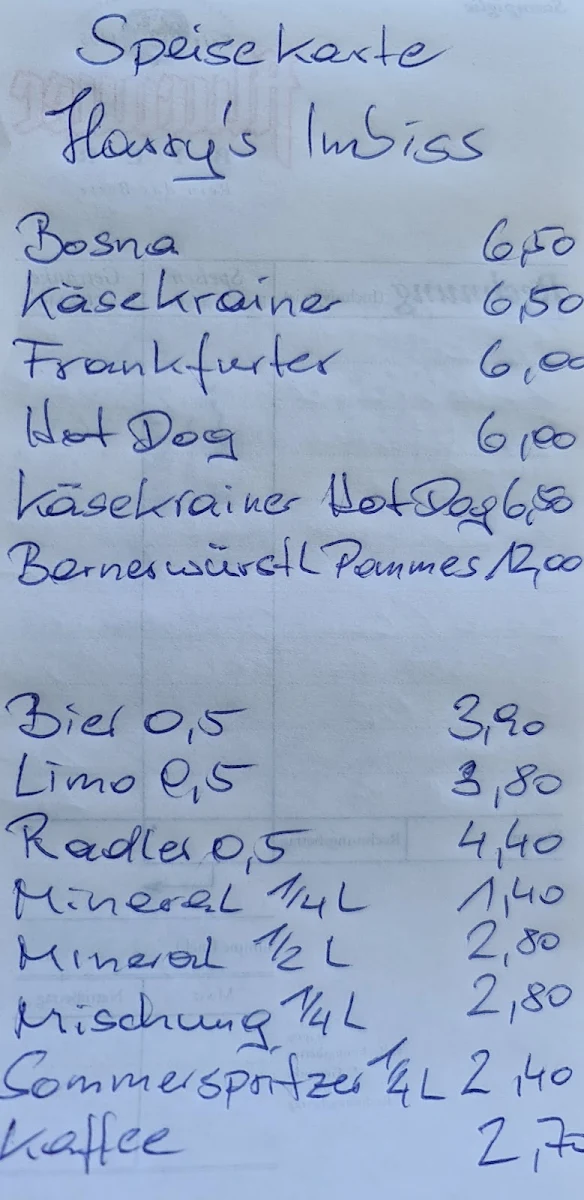 Speisekarte
Harry's Imbiss
Bosna 6,50
Käsekrainer 6,50
Frankfurter 6,00
Hot Dog 6,00
Käsekrainer Hot Dog 6,50
Bernerwürstl Pommes 12,00
Bier 0,5 3,90
Limo 0,5 3,80
Radler 0,5 4,40
Mineral 1/4 L 1,40
Mineral 1/2 L 2,80
Mischung 1/4 L 2,80
Sommerspritzer 1/4 L 2,40
Kaffee 2,70